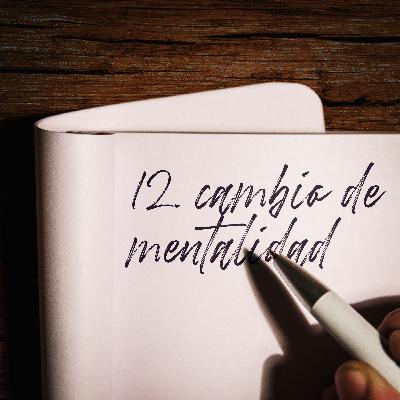 12 cambio de
mentalidad